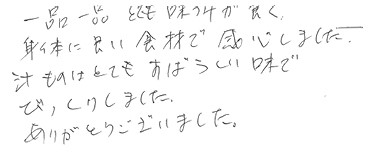 一品一品とても味つけが良く、
身体に良い食材で感心しました。
汁ものはとてもすばらしい味で
びっくりしました。
ありがとうございました。